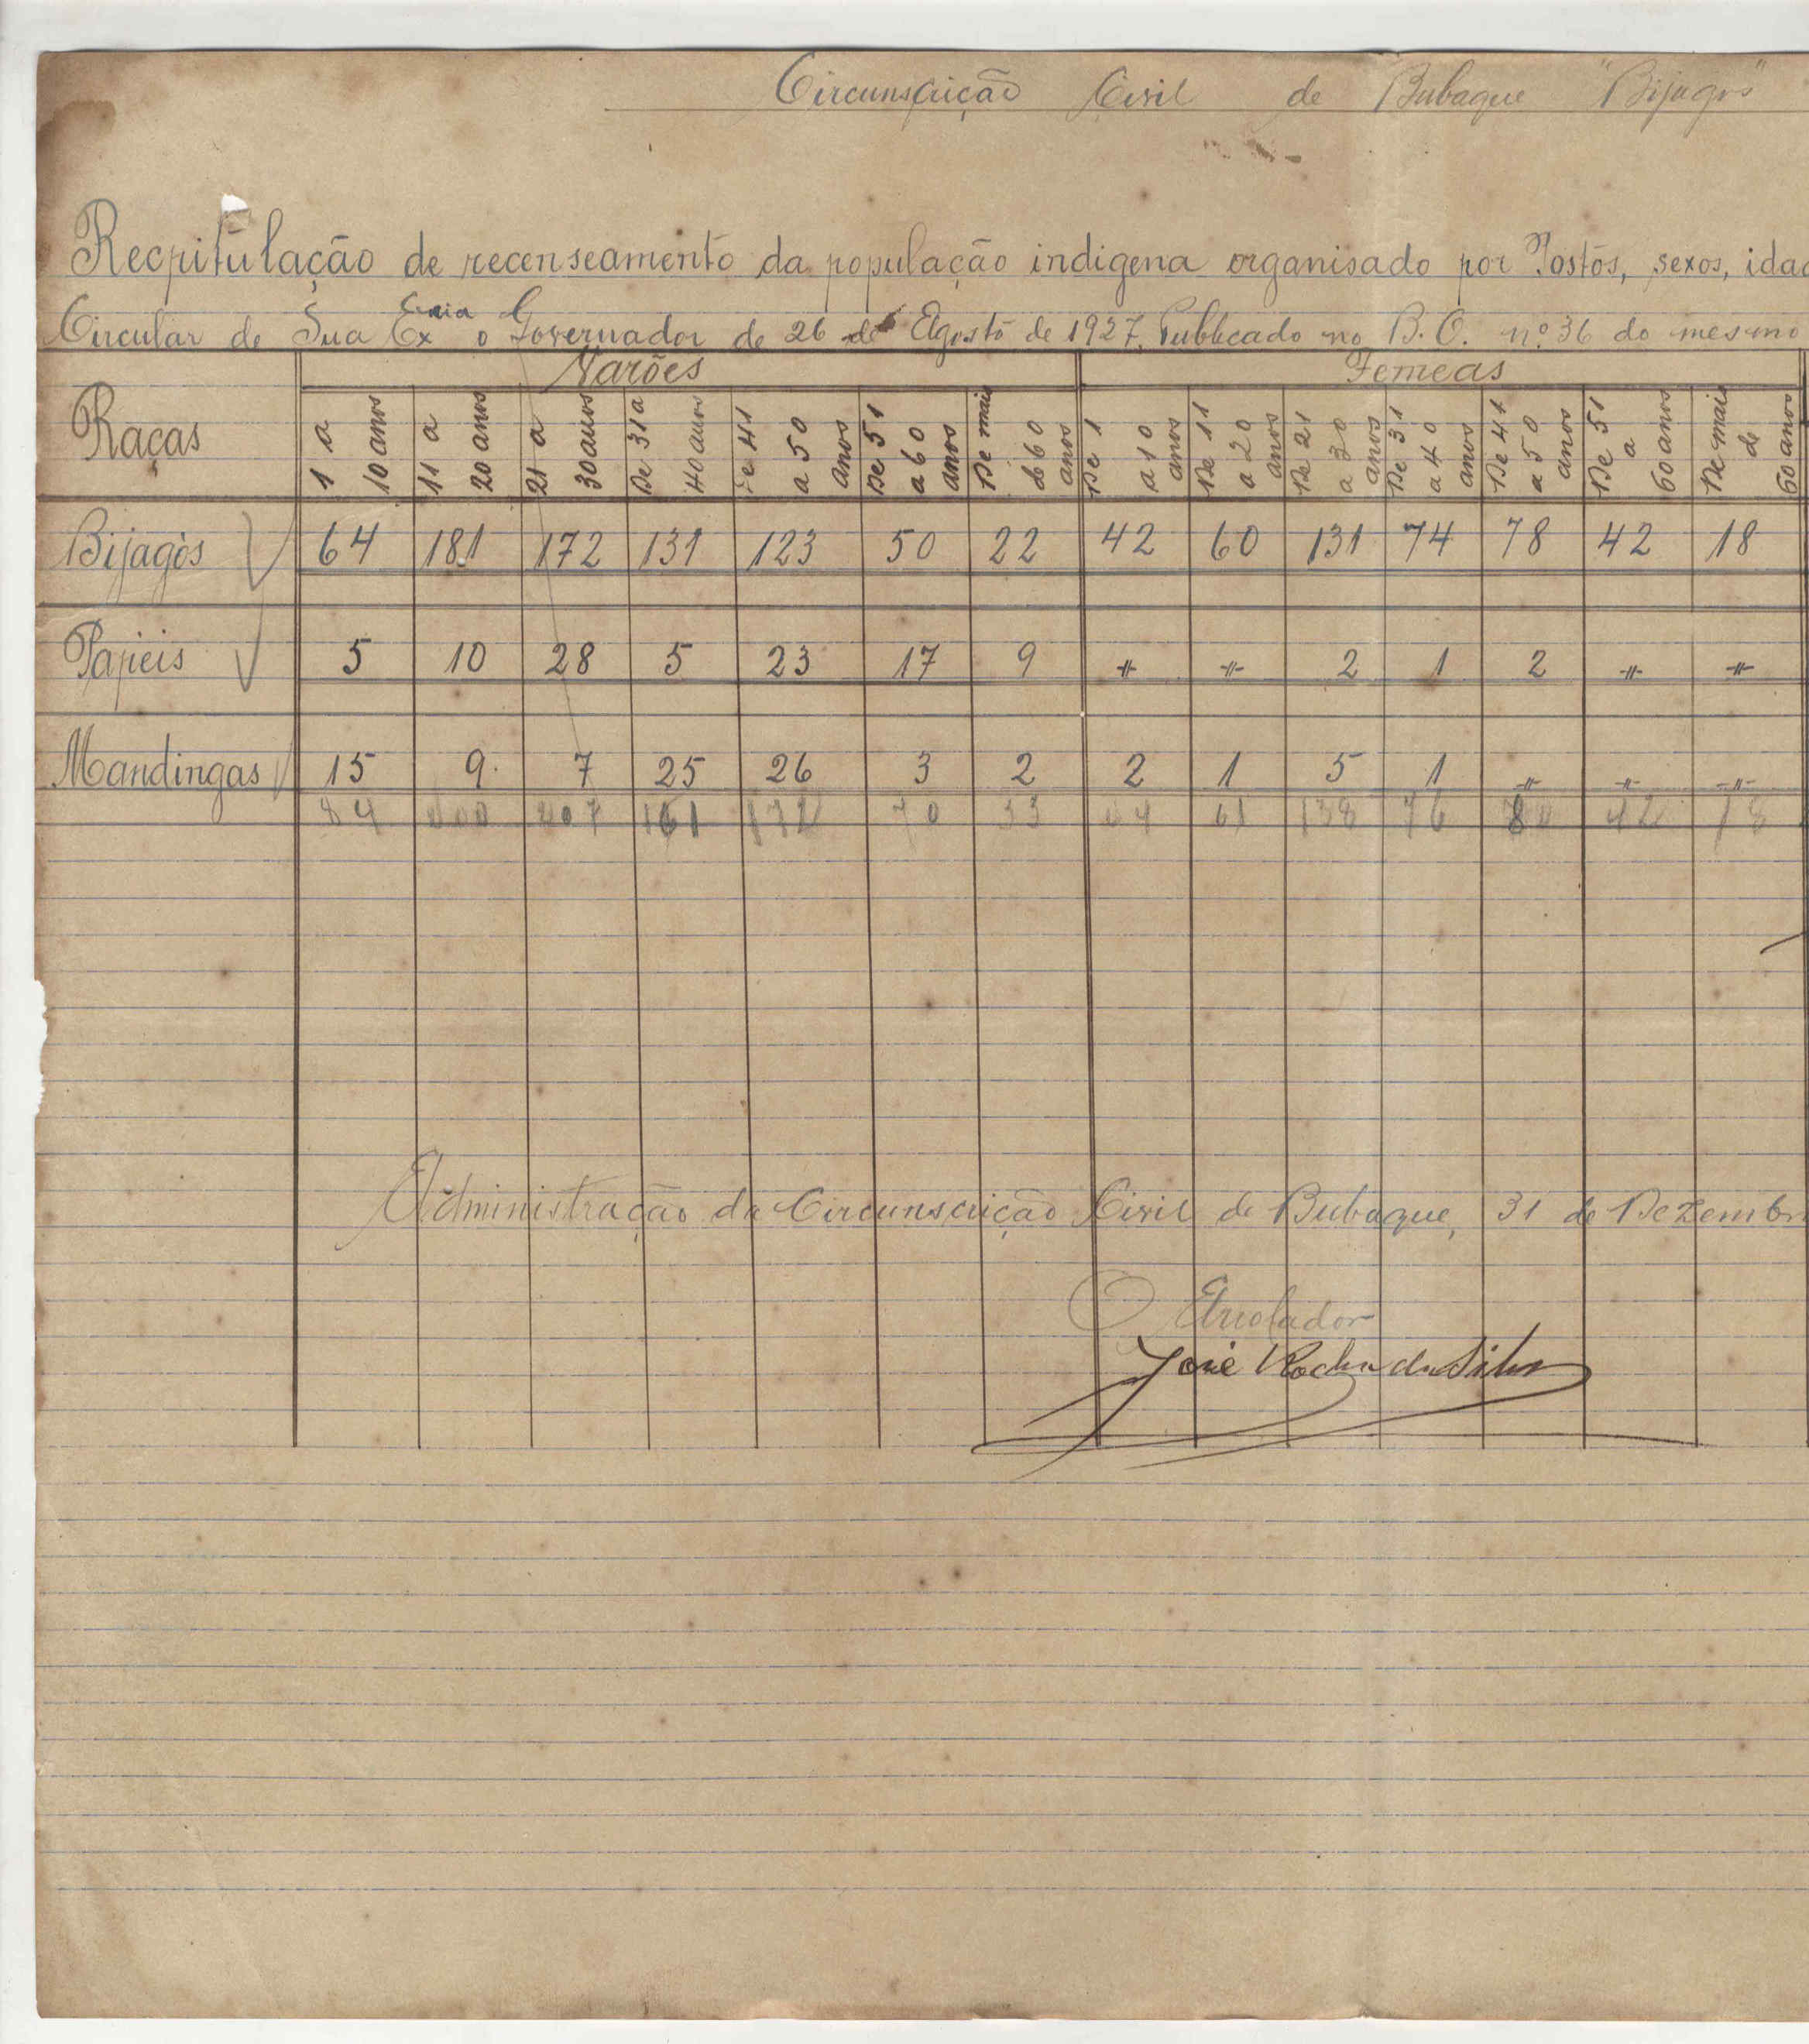 Circunscrição Civil de Bubaque "Bijagos"
Recpitulação de recenseamento da população indigena organisado por Postos, sexos, idad
Circular de Sua Exᶜⁱᵃ o Governador de 26 de Agosto de 1927. Publicado no B. O. nº 36 do mesmo
Raças Varões Femeas
1 a 10 anos 11 a 20 anos 21 a 30 anos De 31 a 40 anos De 41 a 50 anos De 51 a 60 anos De mais de 60 anos De 1 a 10 anos De 11 a 20 anos De 21 a 30 anos De 31 a 40 anos De 41 a 50 anos De 51 a 60 anos De mais de 60 anos
Bijagós 64 181 172 131 123 50 22 42 60 131 74 78 42 18
Papeis 5 10 28 5 23 17 9 -"- -"- 2 1 2 -"- -"-
Mandingas 15 9 7 25 26 3 2 2 1 5 1 -"- -"- -"-
84 200 207 161 172 70 33 44 61 138 76 80 42 18
Administração da Circunscrição Civil de Bubaque, 31 de Dezembr
O Arrolador
José Rocha da Silva